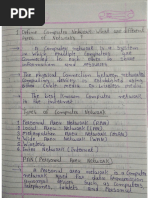 1 Define Computer Network. What are different
types of Networks?
A Computer network is a system
in which multiple computers are
connected to each other to share
information and resources.
The physical connection between networked
Computing devices is established using
either cable media or wireless media.
The best known Computer network is
the Internet.
Types of Computer Network
1. Personal Area Network (PAN)
2. Local Area Network (LAN)
3. Metropolitan Area Network (MAN)
4. Wide Area Network (WAN)
5. Wireless
6. Inter Network (Internet)
PAN (Personal Area Network)
A Personal area network is a computer
network used for communication
among devices such as Computers,
telephones, tablets and Personal